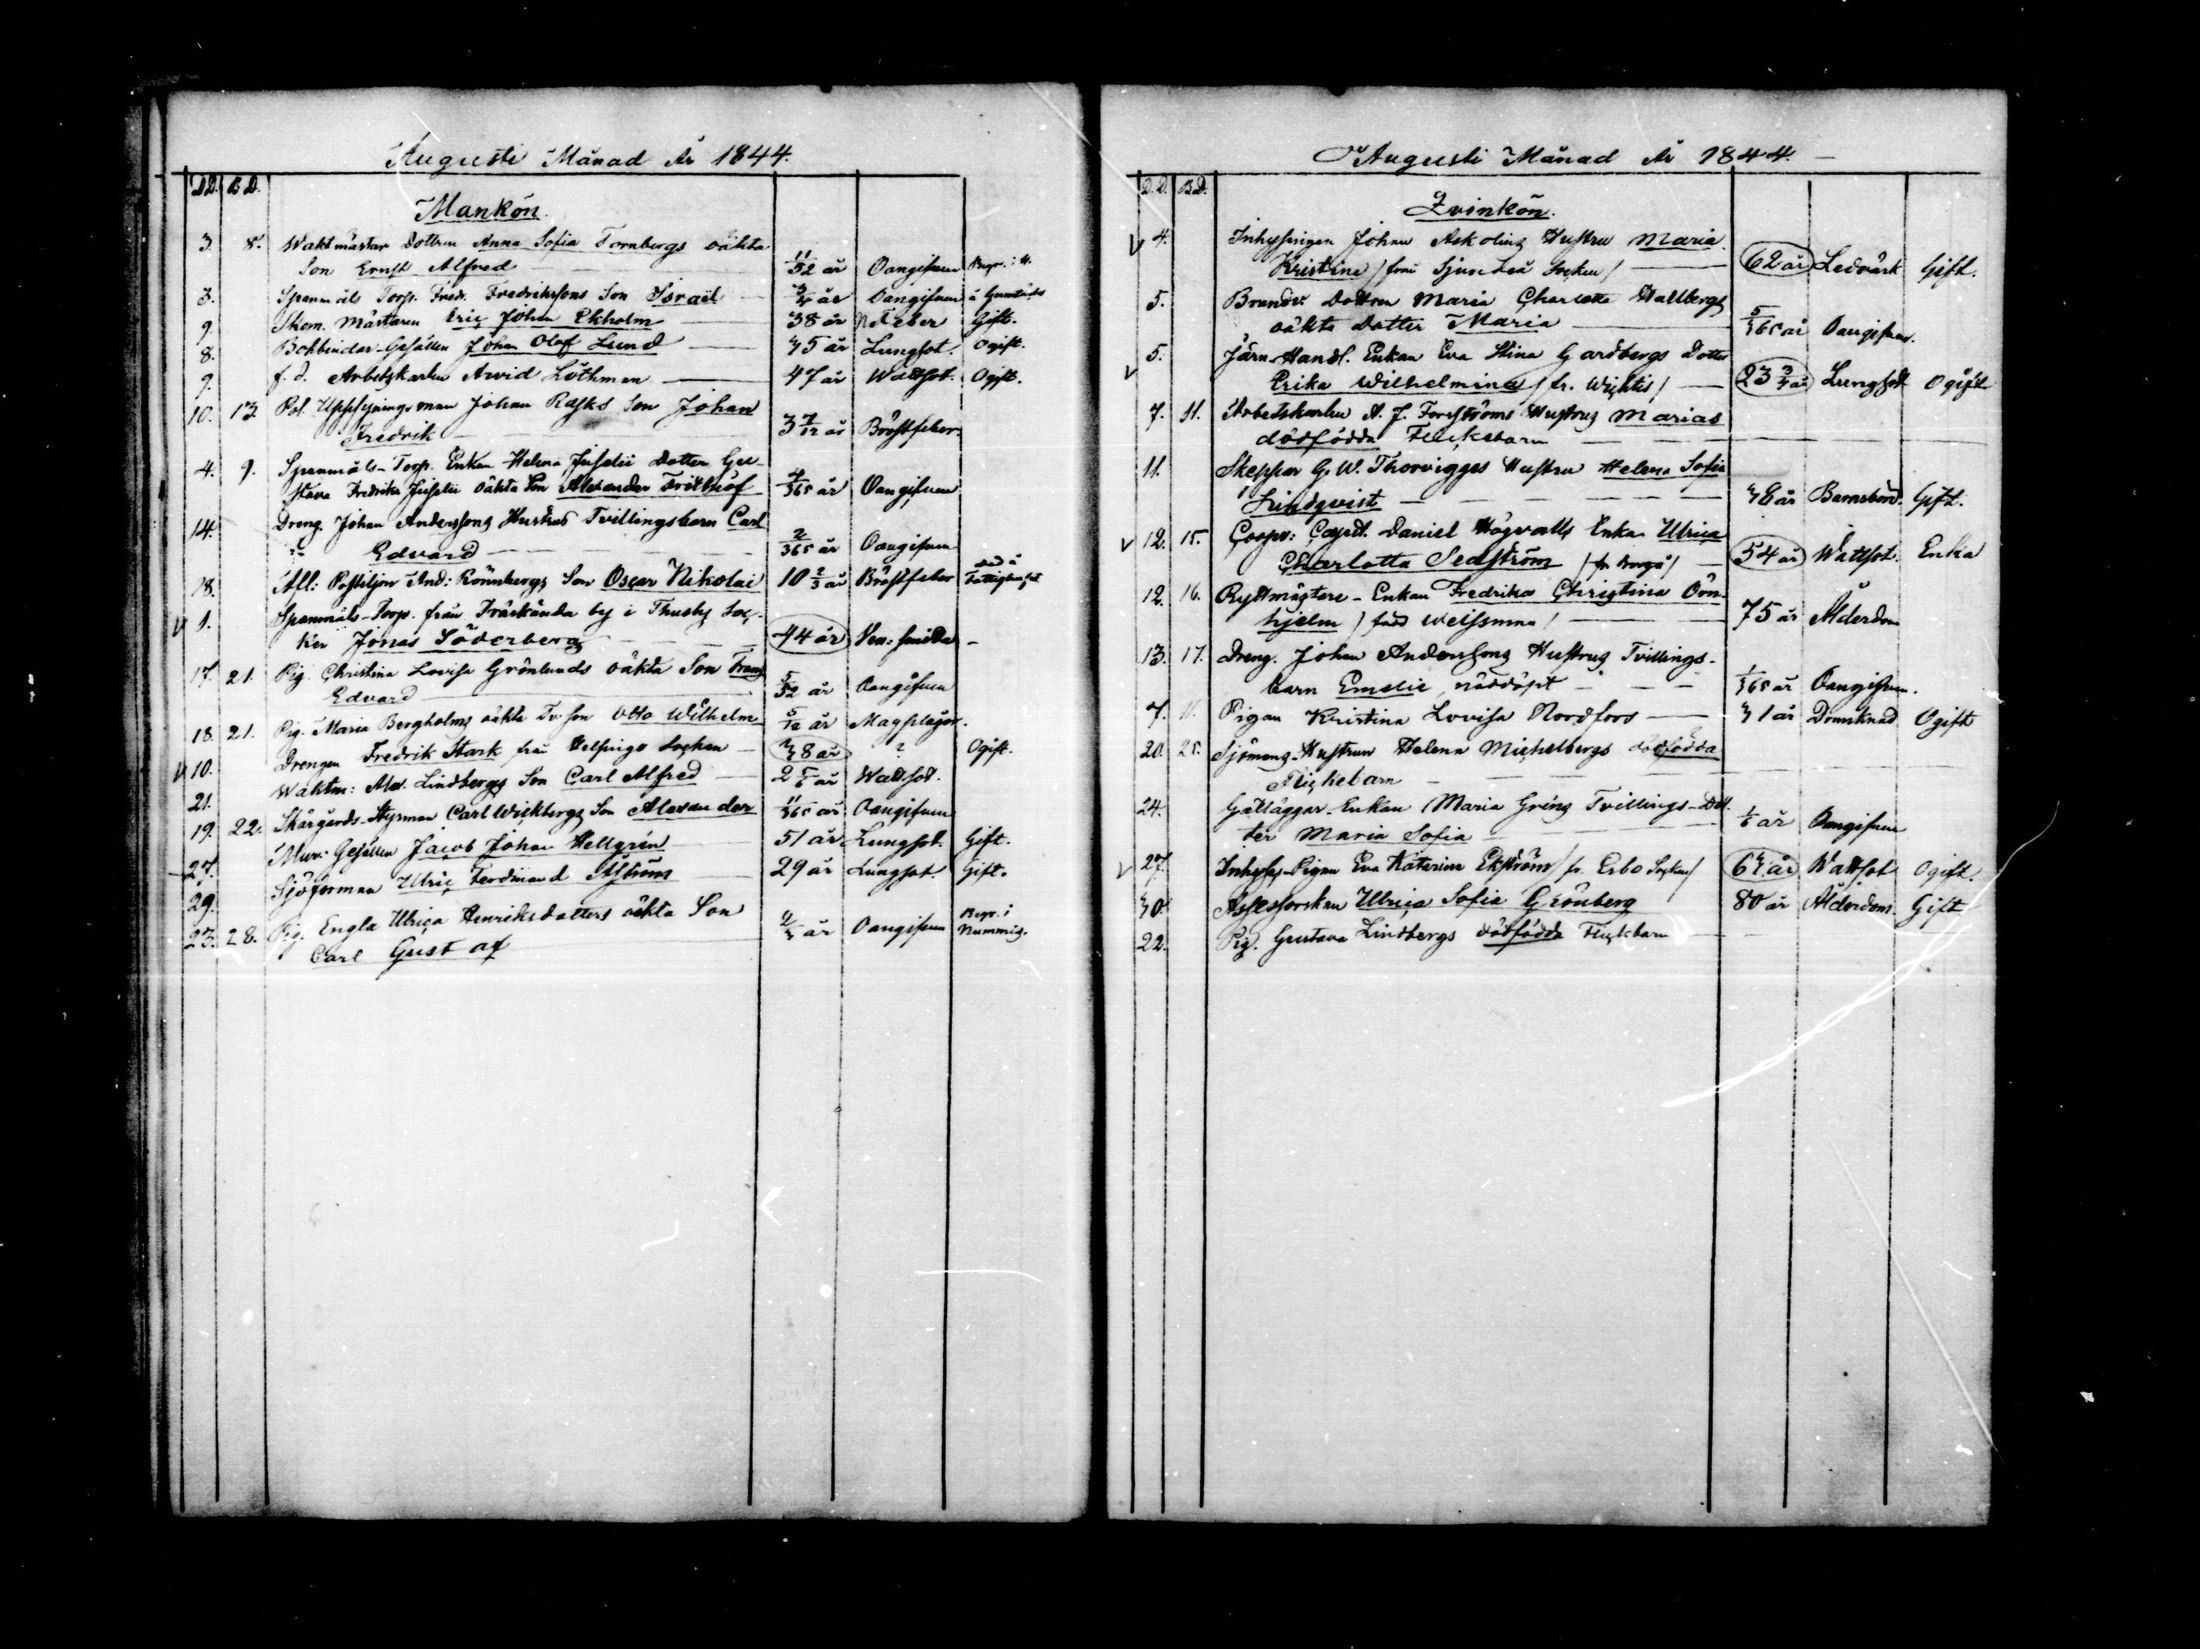 Augusti Månad År 1844.
D.D. B.D.
Mankön.
3. 8. Waktmästar Dottren Anna Sofia Tornbergs oäkta
Son Ernst Alfred 11/52 år Oangifven
3. Spanmåls Torp. Fred. Fredrikssons Son Israel 3/4 år Oangifven
9 Skom. Mästaren Eric Johan Ekholm 38 år Gift.
8. Bokbindar-Gesällen Johan Olof Lund 35 år Lungsot. Ogift.
9. f.d. Arbetskarlen Arvid Löthman 47 år Wattsot. Ogift.
10. 13 Pol. Uppsyningsman Johan Rasks Son Johan
Fredrik 3 7/12 år Bröstfeber.
4. 9. Spanmåls-Torp. Enkan Helena Juselii Dotter Gu-
stava Fredrika Juselii oäkta Son Alexander Frithiof 4/365 år Oangifven
14. Dreng. Johan Anderssons Hustrus Tvillingsbarn Carl
Edvard 2/365 år Oangifven
18. Afl: Postiljon And: Rönnbergs Son Oscar Nikolai 10 2/3 år Bröstfeber
1. Spanmåls-Torp. från Träskända by i Thusby Soc-
ken Jonas Söderberg 44 år Ven: smitta
17. 21. Pig. Christina Lovisa Grönlunds oäkta Son Frans
Edvard 5/52 år Oangifven
18. 21. Pig. Maria Bergholms oäkta Tv. son Otto Wilhelm 5/12 år Magplågor.
10. Drengen Fredrik Stark från Helsinge Socken 38 år ? Ogift.
21. Waktm: Alex. Lindbergs Son Carl Alfred 2 5/6 år Wattsot.
19. 22. Skärgårds-Styrman Carl Wickbergs Son Alexander 11/365 år Oangifven
27. Mur-Gesällen Jacob Johan Hellgrén 51 år Lungsot. Gift.
29. Sjöförman Ulric Ferdinand Åström 29 år Lungsot. Gift.
23. 28. Pig. Engla Ulrica Henriksdotters oäkta Son
Carl Gustaf år Oangifven Begr. i Nummis.
Augusti Månad År 1844.
D.D. B.D.
Qvinkön.
4. Inhysingen Johan Askolins Hustru Maria
Kristina / från Sjundeå Socken / 62 år Ledvärk Gift.
5. Brandv. Dottren Maria Charlotta Hallbergs
oäkta dotter Maria 5/365 år Oangifven.
5. Järn-Handl. Enkan Eva Stina Gardbergs Dotter
Erika Wilhelmina / fr. Wichtis / 23 3/4 år Lungsot Ogift
7. 11. Arbetskarlen A. J. Forsströms Hustrus Marias
dödfödda Flickebarn
11. Skeppar G. W. Thorvigges Hustru Helena Sofia
Lindqvist 38 år Barnsbörd. Gift.
12. 15. Coopv: Capit. Daniel Högvalls Enka Ulrica
Charlotta Sedström / fr Borgå / 54 år Wattsot. Enka
12. 16. Ryttmästare-Enkan Fredrika Christina Örn-
hjelm / född Weissman / 75 år Ålderdom
13. 17. Dreng. Johan Anderssons Hustrus Tvillings-
barn Emelie, nöddöpt 1/365 år Oangifven.
7. 11. Pigan Kristina Lovisa Nordfors 31 år Ogift
20. 25. Sjömans-Hustrun Helena Michelbergs dödfödda
Flickebarn
24. Gatläggar-Enkan Maria Gréns Tvillings-Dot
ter Maria Sofia 1/6 år Oangifven
27. Inhyses-Pigan Eva Katarina Ekström / fr. Esbo Socken / 64 år Wattsot Ogift.
30. Assessorskan Ulrica Sofia Grönberg 80 år Ålderdom. Gift
22. Pig. Gustava Lindbergs dödfödda Flickbarn